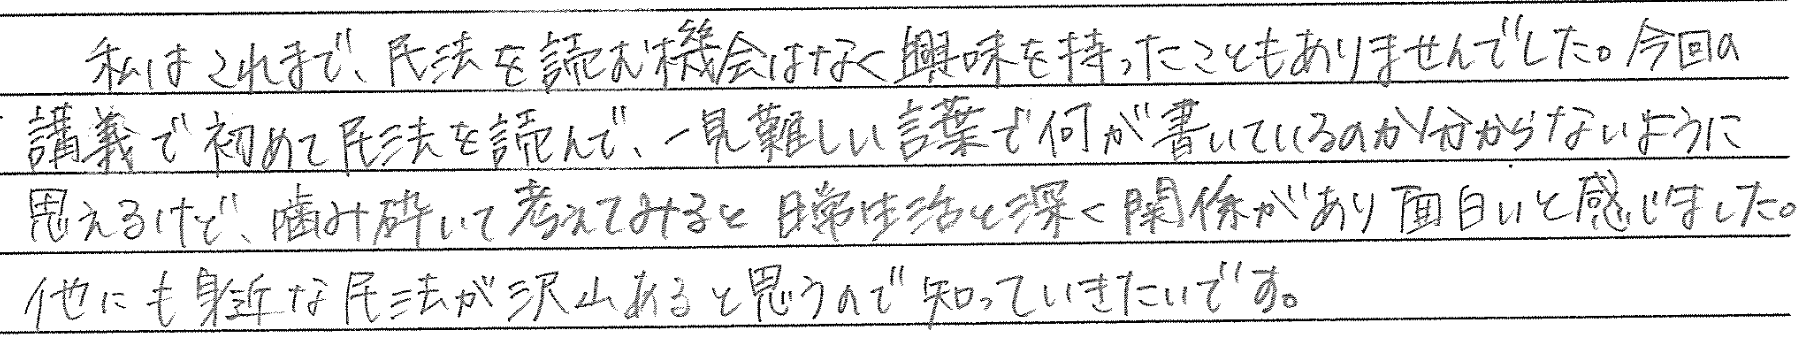 私はこれまで、民法を読む機会はなく興味を持ったこともありませんでした。今回の
講義で初めて民法を読んで、一見難しい言葉で何が書いているのか分からないように
思えるけど、噛み砕いて考えてみると日常生活と深く関係があり面白いと感じました。
他にも身近な民法が沢山あると思うので知っていきたいです。